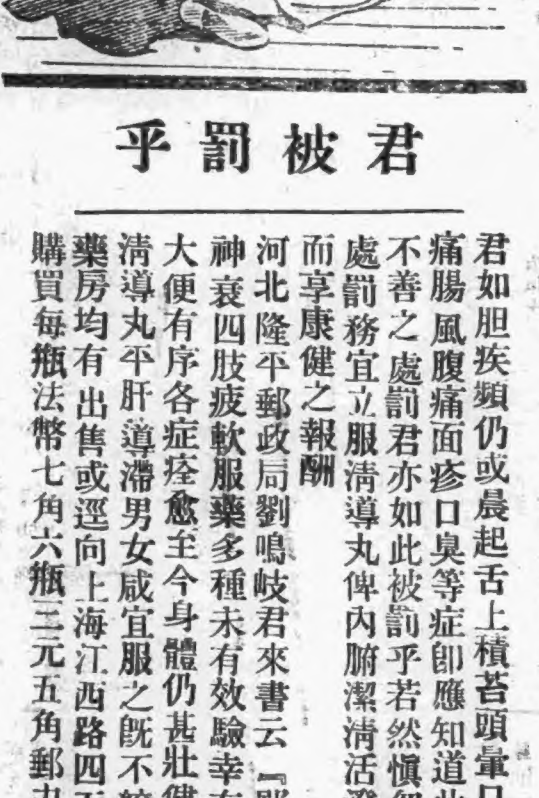 君被罰乎
君如胆疾頻仍或晨起舌上積苔頭暈口
痛腸風腹痛面疹口臭等症卽應知道此
不善之處罰君亦如此被罰乎若然愼勿
處罰務宜立服淸導丸俾內腑潔淸活潑
而享康健之報酬
河北隆平郵政局劉鳴岐君來書云『鄙
神衰四肢疲軟服藥多種未有效驗幸有
大便有序各症痊愈至今身體仍甚壯健
淸導丸平肝導滯男女咸宜服之旣不
藥房均有出售或逕向上海江西路四百
購買每瓶法幣七角六瓶三元五角郵力